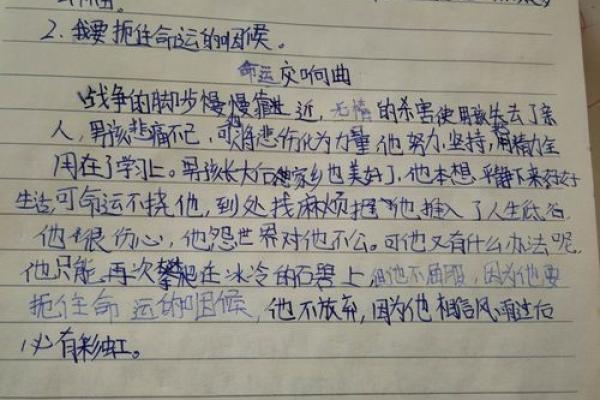 2. 我要扼住命运的咽候。
命运交响曲
战争的脚步慢慢靠近,无情的杀害使男孩失去了亲
人,男孩悲痛不已,可将悲伤化为力量他努力,坚持,用精力全
用在了学习上。男孩长大后家乡也美好了,他本想平静下来好好
生活,可命运不挠他,到处找麻烦把他捅入了人生低谷
他很伤心,他怨世界对他不公。可他又有什么办法呢,
他只能再次攀爬在冰冷的石壁上,但他不屈服,因为他要
扼住命运的咽候,他不放弃,因为他相信风雨过后
必有彩虹。